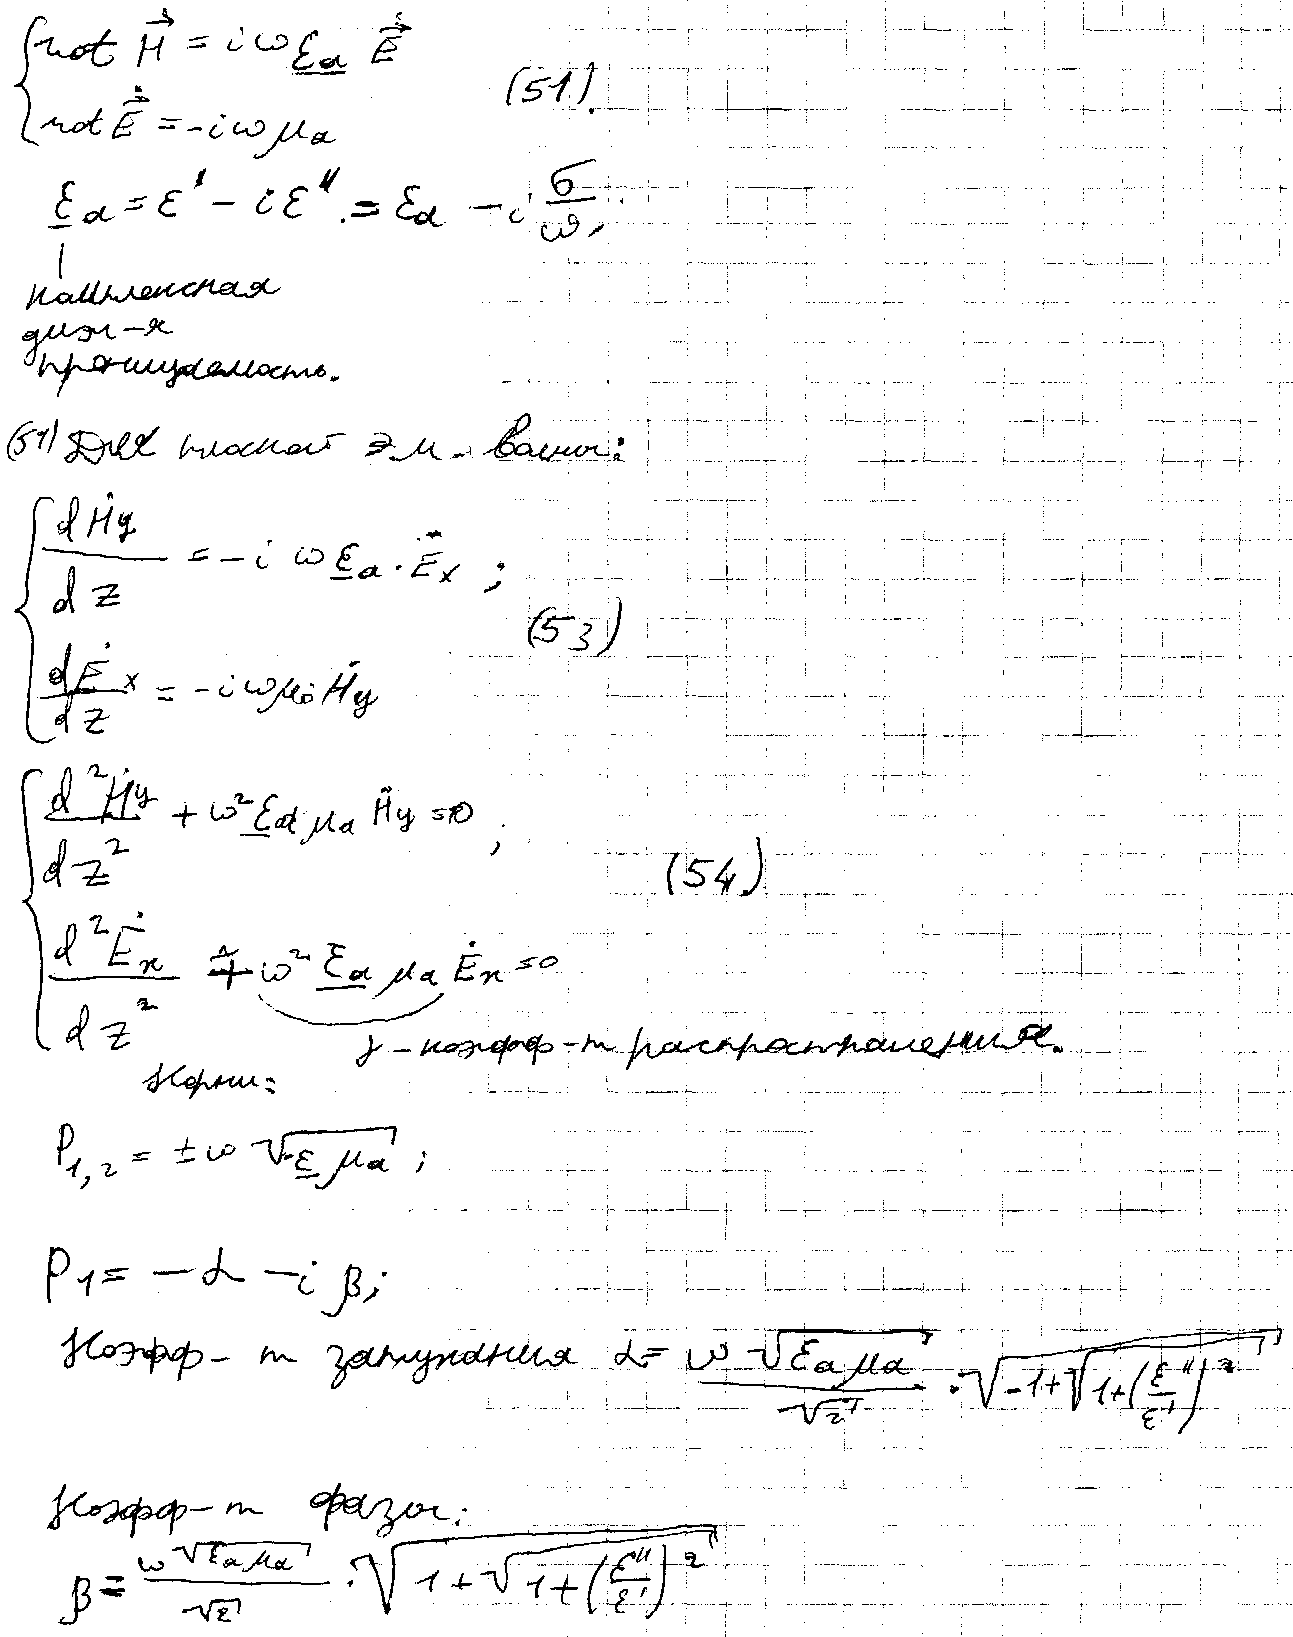 rot H⃗ = iω ε̲a E⃗
(51).
rot E⃗ = -iωμa
ε̲a = ε' - iε'' = εa - i σ/ω,
комплексная
диэл-я
проницаемость.
(51) Для плоской э.м. волны:
dḢy/dz = -iω ε̲a · Ėx ;
(53)
dĖx/dz = -iωμ₀ Ḣy
d²Ḣy/dz² + ω² ε̲a μa Ḣy = 0 ;
(54)
d²Ėx/dz² + ω² ε̲a μa Ėx = 0
γ - коэфф-т распространения.
Корни:
P1,2 = ± ω √(-ε̲ μa) ;
P1 = -α - iβ;
Коэфф-т затухания α = ω√(εa μa)/√2 · √(-1+√(1+(ε''/ε')²))
Коэфф-т фазы:
β = ω√(εa μa)/√2 · √(1+√(1+(ε''/ε')²))